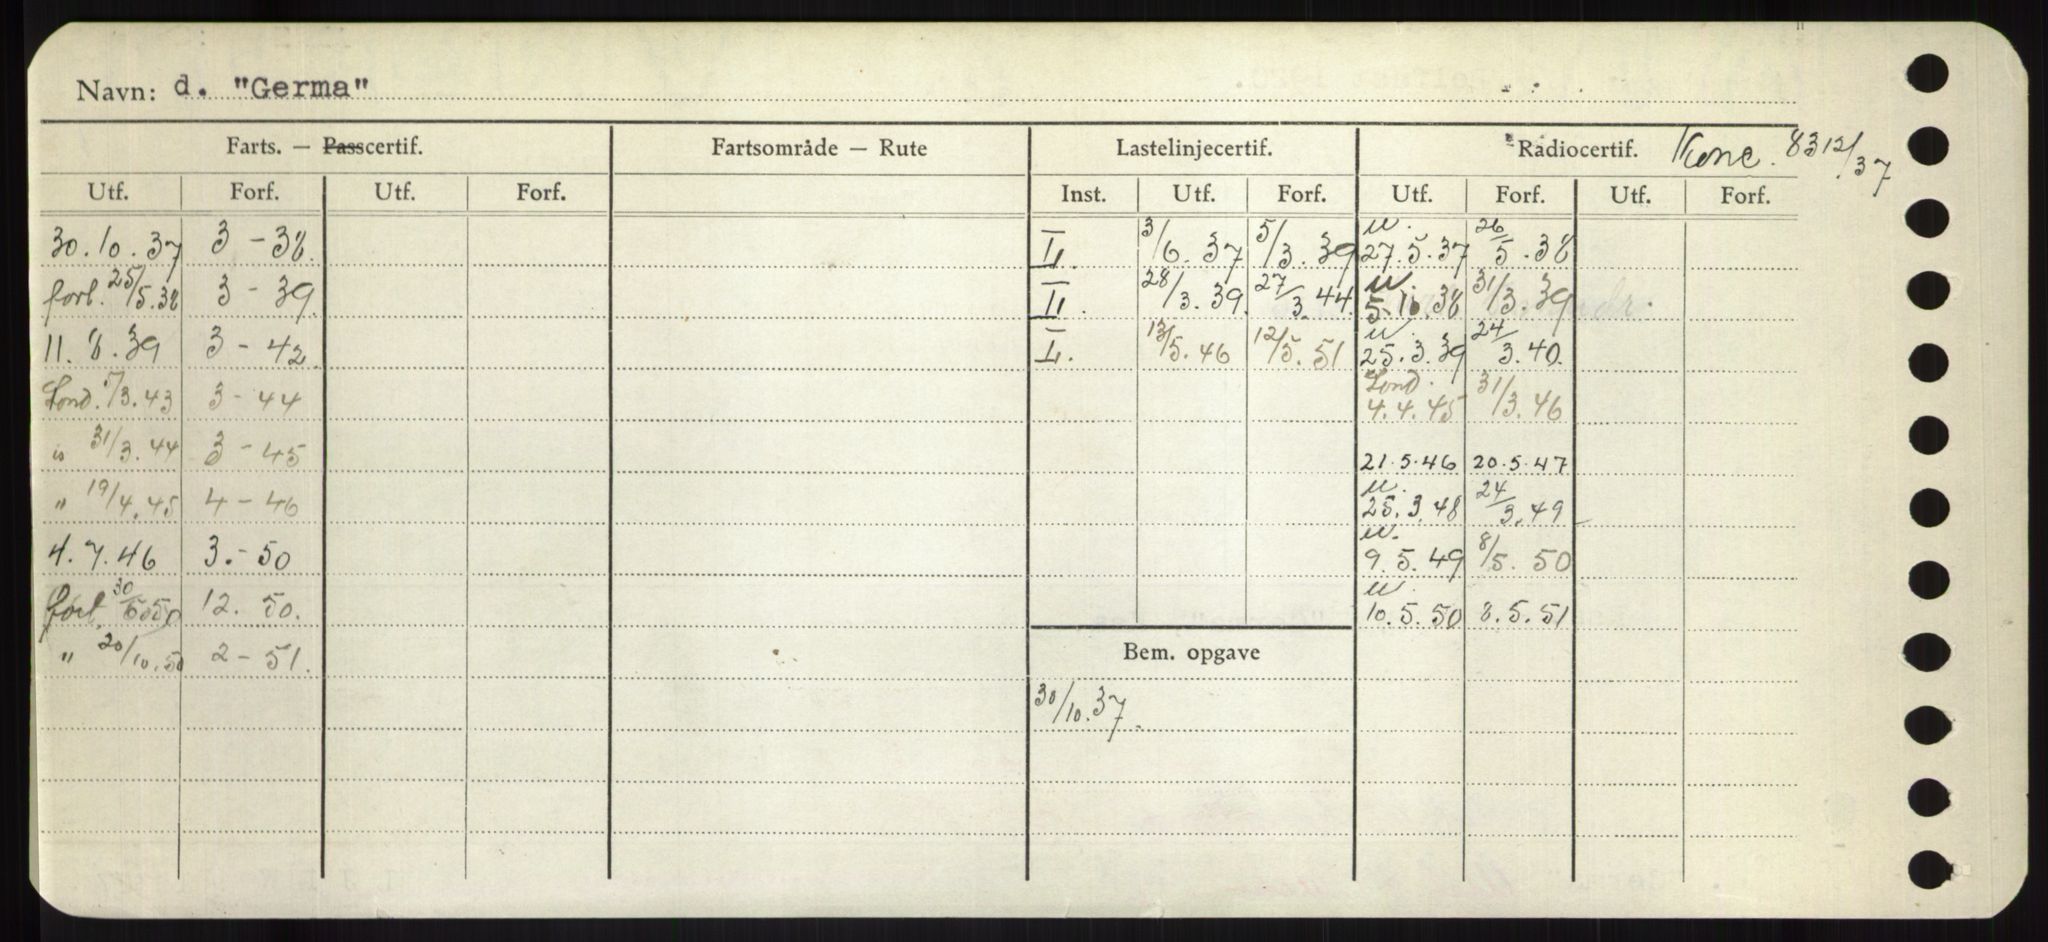 Navn: d. "Germa"
Farts. — Passcertif. Fartsområde — Rute Lastelinjecertif. Radiocertif. Konc. 8312/37
Utf. Forf. Utf. Forf. Inst. Utf. Forf. Utf. Forf. Utf. Forf.
30.10.37 3 - 38. 3/6.37 5/3.39 27.5.37 26/5.38
forl. 25/5.38 3 - 39. 28/3.39. 27/3.44. 5.10.38 31/3.39
11.8.39 3 - 42. 13/5.46 12/5.51 25.3.39 24/3.40.
Lond. 7/3.43 3 - 44 Lond. 4.4.45 31/3.46
31/3.44 3 - 45 21.5.46 20.5.47
" 19/4.45 4 - 46 25.3.48 24/3.49
4.7.46 3.- 50 9.5.49 8/5.50
forl. 30/6.50 12. 50. 10.5.50 8.5.51
" 20/10.50 2 - 51.
Bem. opgave
30/10.37.